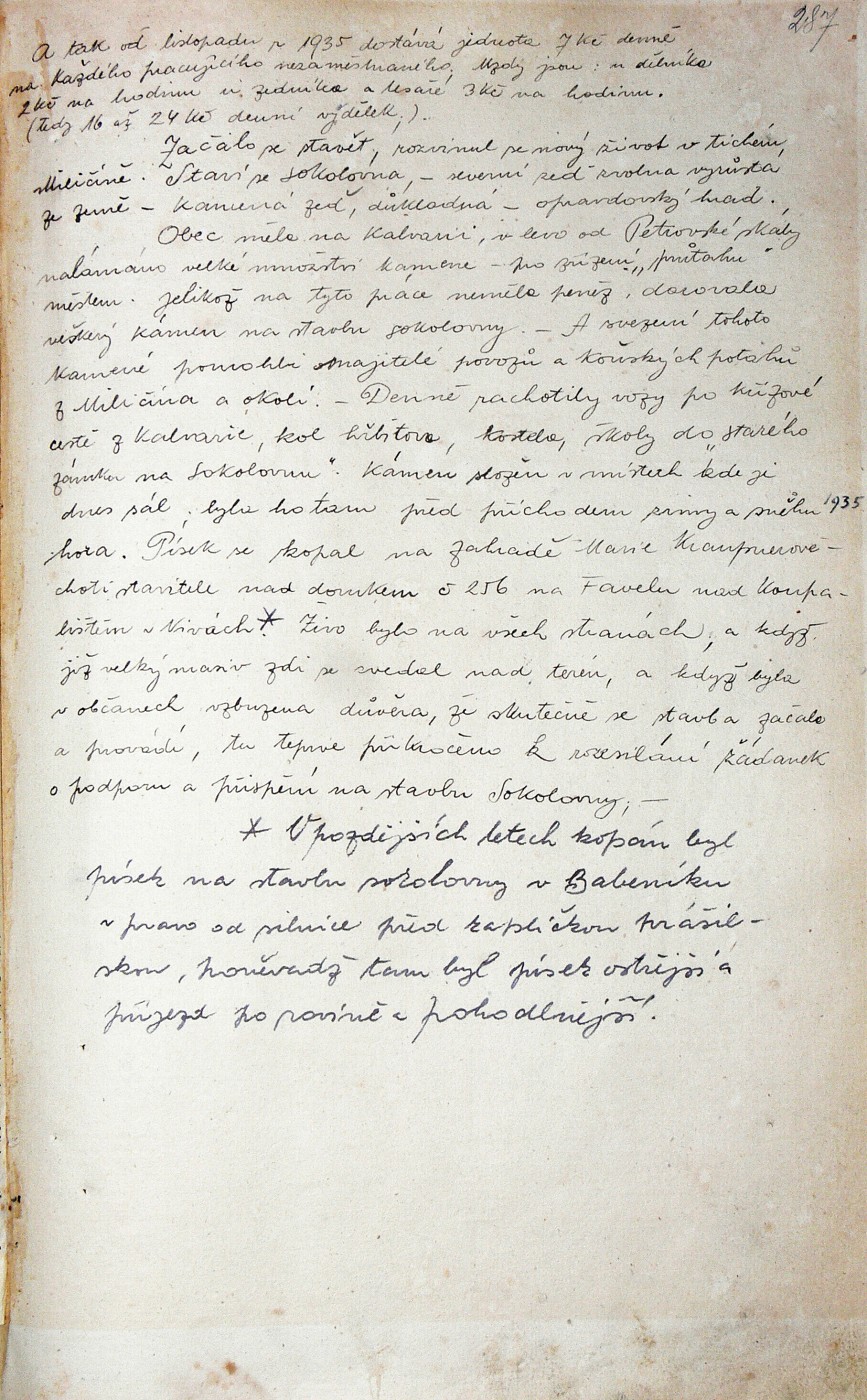 287
A tak od listopadu r 1935 dostává jednota 7 Kč denně
na každého pracujícího nezaměstnaného, Mzdy jsou: u dělníka
2 Kč na hodinu u zedníka a tesaře 3 Kč na hodinu.
(tedy 16 až 24 Kč denní výdělek,).
Začalo se stavět, rozvinul se nový život v tichém
Miličíně. Staví se Sokolovna, – severní zeď zvolna vyrůstá
ze země – Kamená zeď, důkladná – opravdovský hrad.
Obec měla na Kalvarii, v levo od Petrovské skály
nalámáno velké množství kamene – po zřízení „průtahu“
městem. Jelikož na tyto práce neměla peněz, darovala
veškerý kámen na stavbu sokolovny. – A svezení tohoto
kamené pomohli majitelé povozů a koňských potahů
z Miličína a okolí. – Denně rachotily vozy po křížové
cestě z Kalvarie, kol hřbitova, kostela, školy do „starého
zámku na Sokolovnu“. Kámen složen v místech kde je
dnes sál, bylo ho tam před příchodem zimy a sněhu 1935
hora. Písek se kopal na zahradě Marie Kraupnerové –
choti stavitele nad domkem č 256 na Favelu nad Koupa-
lištěm v Nivách *. Živo bylo na všech stranách, a když
již velký masiv zdi se zvedal nad terén, a když byla
v občanech vzbuzena důvěra, že skutečně se stavba začala
a provádí, tu teprve přikročeno k rozesílání žádanek
o podporu a přispění na stavbu Sokolovny, –
* V pozdějších letech kopán byl
písek na stavbu sokolovny v Babeníku
v pravo od silnice před kapličkou prášil-
skou, poněvadž tam byl písek ostřejší a
příjezd po rovině a pohodlnější.